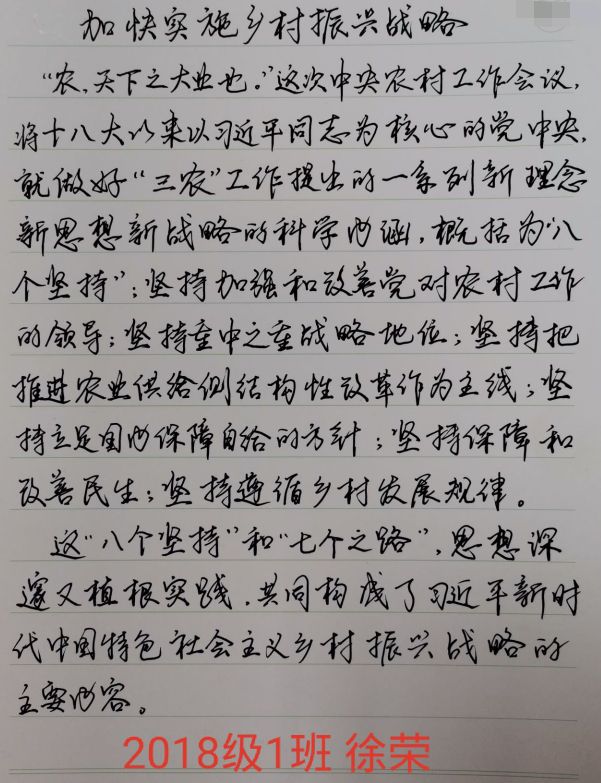 加快实施乡村振兴战略
“农,天下之大业也。”这次中央农村工作会议,
将十八大以来以习近平同志为核心的党中央,
就做好“三农”工作提出的一系列新理念
新思想新战略的科学内涵,概括为“八
个坚持”;坚持加强和改善党对农村工作
的领导;坚持重中之重战略地位;坚持把
推进农业供给侧结构性改革作为主线;坚
持立足国内保障自给的方针;坚持保障和
改善民生;坚持遵循乡村发展规律。
这“八个坚持”和“七个之路”,思想深
邃又植根实践,共同构成了习近平新时
代中国特色社会主义乡村振兴战略的
主要内容。
2018级1班 徐荣